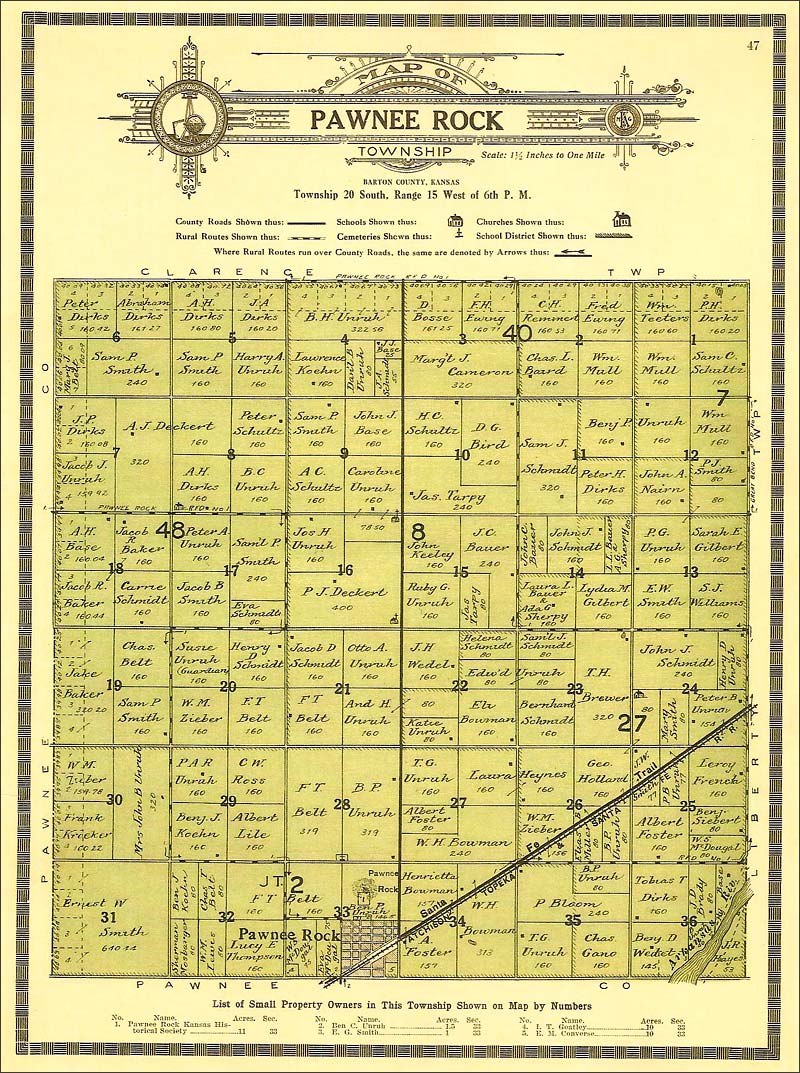 47
MAP OF
PAWNEE ROCK
TOWNSHIP
Scale: 1½ Inches to One Mile
BARTON COUNTY, KANSAS
Township 20 South, Range 15 West of 6th P. M.
County Roads Shown thus: Schools Shown thus: Churches Shown thus:
Rural Routes Shown thus: Cemeteries Shown thus: School District Shown thus:
Where Rural Routes run over County Roads, the same are denoted by Arrows thus:
CLARENCE TWP
PAWNEE ROCK RFD No 1
Peter Dirks 160 42
Abraham Dirks 161 27
6
A.H. Dirks 160 80
J.A. Dirks 160 20
5
B.H. Unruh 322 56
4
D. Bosse 161 25
F.H. Ewing 160 71
3
40
C.H. Remmert 160 53
Fred Ewing 160 71
2
Wm. Teeters 160 60
P.H. Dirks 160 20
1
Mary J. Belt
Sam P. Smith 240
Sam P Smith 160
Harry A. Unruh 160
Lawrence Koehn 160
Dan'l B Unruh 80
J.J. Base
J.A. Schmidt 55
Marg't J. Cameron 320
Chas. L. Board 160
Wm. Mull 160
Wm. Mull 160
Sam C. Schultz 160
7
J.P. Dirks 160 08
A.J. Deckert 320
7
Peter Schultz 160
160
8
Sam P Smith 160
John J. Base 160
9
H.C. Schultz 160
D.G. Bird 240
10
Sam J. Schmidt 320
11
Benj P. Unruh 160
160
12
Wm Mull 160
Jacob J. Unruh 159 92
A.H. Dirks 160
B.C Unruh 160
A C. Schultz 160
Caroline Unruh 160
Jas. Tarpy 240
Peter H. Dirks 160
John A. Nairn 160
P.J. Smith 80
80
PAWNEE ROCK RFD No 1
A.H. Base 160 04
Jacob R Baker 160
18
48
Peter A. Unruh 160
Sam'l P. Smith 240
17
Jos H Unruh 160
78 50
16
8
John Keeley 160
J.C. Bauer 240
15
John C. Bauer 80
John J. Schmidt 160
14
P.G. Unruh 160
Sarah E. Gilbert 160
13
Jacob R. Baker 160 44
Carrie Schmidt 160
Jacob B Smith 160
Eva Schmidt 80
P J. Deckert 400
Ruby G. Unruh 160
Jas Tarpy 80
Laura L Bauer & Ada G Sherpy 160
Lydia M. Gilbert 160
E.W. Smith 160
S.J. Williams 160
Jake Baker 320 20
Chas. Belt 160
19
Susie Unruh (Guardian) 160
Henry D Schmidt 160
20
Jacob D Schmidt 160
Otto A. Unruh 160
21
J.H Wedel 160
Helena Schmidt 80
Edw'd Unruh 160
22
Sam'l J. Schmidt 80
T.H. Brewer 320
23
John J. Schmidt 240
Henry D Unruh 80
24
Sam P. Smith 160
W.M. Zieber 160
F.T Belt 160
F T Belt 160
And H. Unruh 160
80
Katie Unruh 80
Eli Bowman 160
Bernhard Schmidt 160
27
80
Mary Smith 80
Peter B. Unruh 154
W M. Zieber 159.78
Mrs John B Unruh 320
30
P A R Unruh 160
C W. Ross 160
29
F T. Belt 319
B P. Unruh 319
28
T.G. Unruh 160
Laura Heynes 160
27
Geo. Holland 160
26
J.W. Smith 77
P.B. Unruh 77
Leroy French 160
25
Frank Krecker 160 22
Benj. J. Koehn 160
Albert Lile 160
Albert Foster 80
W.H. Bowman 240
W.M. Zieber 156
Elias Miller 80
B.P. Unruh 80
Albert Foster 160
Benj. Siebert 80
W.S. McDougal 80
RFD No 1
Santa Fe Trail
ATCHISON TOPEKA & SANTA FE R.R.
Ernest W Smith 640 44
31
Ben J Koehn 80
Chas T Belt 80
32
J T. 2
F T Belt 160
160
Pawnee Rock
Ben P. Unruh
33
Henrietta Bowman 157
W.H. Bowman 313
34
B.P Unruh 80
P Bloom 240
35
Tobias T Dirks 160
36
Sherman Mosbarger 80
W.M. Lewis 80
Lucy E Thompson 160
Pawnee Rock
A. Foster 157
T.G. Unruh 160
Chas. Gano 160
Benj. D. Wedel 145
Arkansas Riv.
J.R. Hayes 53
PAWNEE CO
PAWNEE CO
LIBERTY TWP
List of Small Property Owners in This Township Shown on Map by Numbers
No. Name. Acres. Sec. No. Name. Acres. Sec. No. Name. Acres. Sec.
1. Pawnee Rock Kansas Historical Society 11 33
2. Ben C. Unruh 1.5 33
3. E. G. Smith 1 33
4. I. T. Goatley 10 33
5. E. M. Converse 10 33